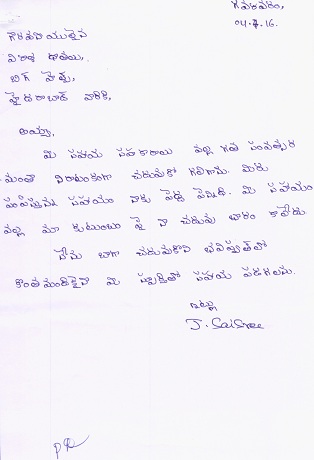 గన్నవరం,
04.7.16.
గౌరవనీయులైన
విరాళ దాతలు,
బిగ్ హెల్ప్,
హైదరాబాద్ వారికి,
అయ్యా,
మీ సహాయ సహకారాల వల్ల గత సంవత్సర
మంతా నిరాటంకంగా చదువుకో గలిగాను. మీరు
పంపిస్తున్న సహాయం నాకు పెద్ద పెన్నిధి. మీ సహాయం
వల్ల మా కుటుంబం పై నా చదువు భారం కాలేదు
నేను బాగా చదువుకొని భవిష్యత్ లో
కొంతమందికైనా మీ స్ఫూర్తితో సహాయ పడగలను.
ఇట్లు
J. SaiSree